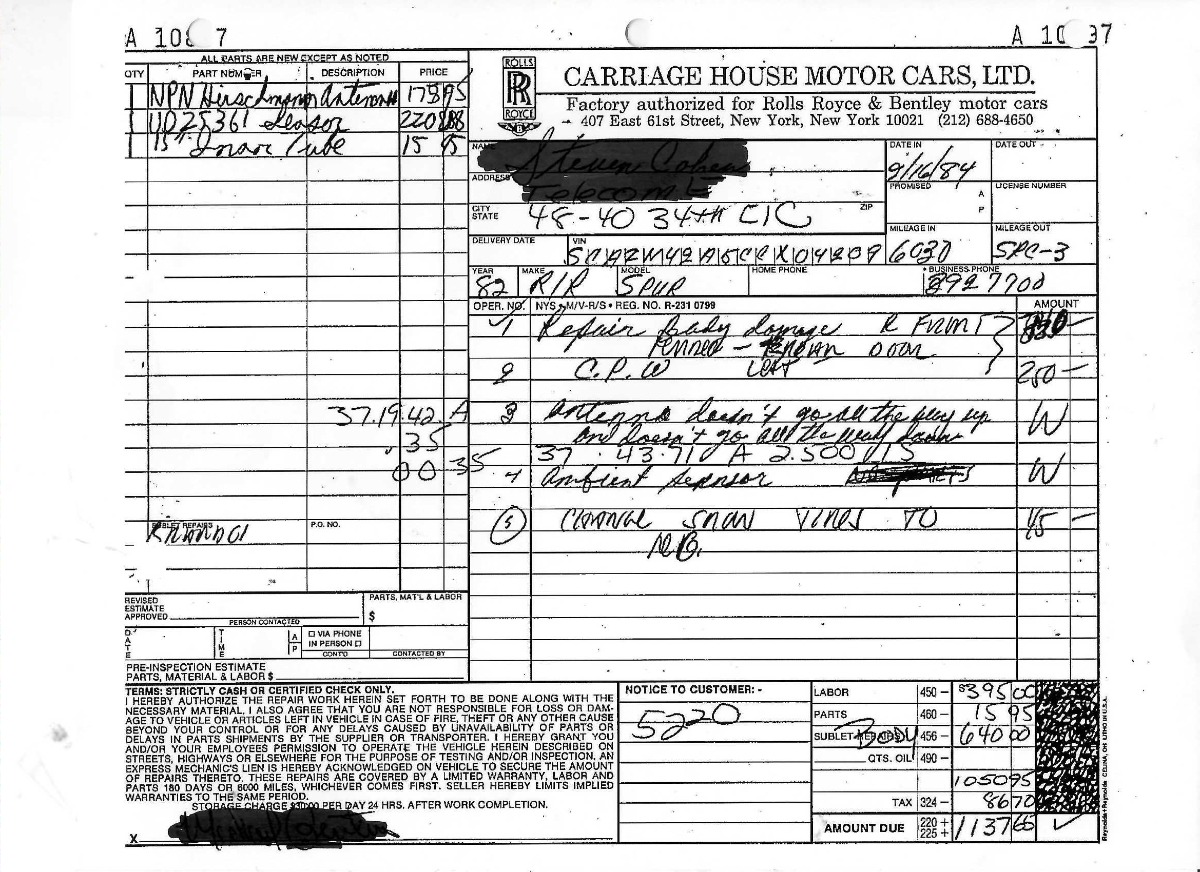 A 108 7
A 10 37
ALL PARTS ARE NEW EXCEPT AS NOTED
QTY PART NUMBER DESCRIPTION PRICE
1 NPN Hirschmann Antenna 178 95
1 UD25361 Sensor
1 15" Inner Tube 15 95
ROLLS
RR
ROYCE
CARRIAGE HOUSE MOTOR CARS, LTD.
Factory authorized for Rolls Royce & Bentley motor cars
407 East 61st Street, New York, New York 10021 (212) 688-4650
NAME
ADDRESS
CITY STATE 48-40 34TH CIC ZIP
DATE IN 9/16/84
DATE OUT
PROMISED A P
LICENSE NUMBER
MILEAGE IN 6030
MILEAGE OUT SPC-3
DELIVERY DATE
VIN
YEAR 82 MAKE R/R MODEL SPUR HOME PHONE BUSINESS PHONE 892 7700
OPER. NO. NYS • M/V-R/S • REG. NO. R-231 0799 AMOUNT
1 Repair Body damage R FRONT
FENDER - DOOR
2 C.P.W LEFT 250 —
3 Antenna doesn't go all the way up W
and doesn't go all the way down
37.19.42 A
.35
00 35
37 . 43.71 A 2.500 15
4 Ambient Sensor W
5 CHANGE SNOW TIRES TO 45 —
N.B.
SUBLET REPAIRS
P.O. NO.
REVISED
ESTIMATE
APPROVED
PERSON CONTACTED
PARTS, MAT'L & LABOR
$
DATE
TIME
A P
VIA PHONE
IN PERSON
CONT'D
CONTACTED BY
PRE-INSPECTION ESTIMATE
PARTS, MATERIAL & LABOR $
TERMS: STRICTLY CASH OR CERTIFIED CHECK ONLY.
I HEREBY AUTHORIZE THE REPAIR WORK HEREIN SET FORTH TO BE DONE ALONG WITH THE
NECESSARY MATERIAL. I ALSO AGREE THAT YOU ARE NOT RESPONSIBLE FOR LOSS OR DAM-
AGE TO VEHICLE OR ARTICLES LEFT IN VEHICLE IN CASE OF FIRE, THEFT OR ANY OTHER CAUSE
BEYOND YOUR CONTROL OR FOR ANY DELAYS CAUSED BY UNAVAILABILITY OF PARTS OR
DELAYS IN PARTS SHIPMENTS BY THE SUPPLIER OR TRANSPORTER. I HEREBY GRANT YOU
AND/OR YOUR EMPLOYEES PERMISSION TO OPERATE THE VEHICLE HEREIN DESCRIBED ON
STREETS, HIGHWAYS OR ELSEWHERE FOR THE PURPOSE OF TESTING AND/OR INSPECTION. AN
EXPRESS MECHANIC'S LIEN IS HEREBY ACKNOWLEDGED ON VEHICLE TO SECURE THE AMOUNT
OF REPAIRS THERETO. THESE REPAIRS ARE COVERED BY A LIMITED WARRANTY, LABOR AND
PARTS 180 DAYS OR 6000 MILES, WHICHEVER COMES FIRST. SELLER HEREBY LIMITS IMPLIED
WARRANTIES TO THE SAME PERIOD.
STORAGE CHARGE $30.00 PER DAY 24 HRS. AFTER WORK COMPLETION.
X
NOTICE TO CUSTOMER: -
5220
LABOR 450 — $395 00
PARTS 460 — 15 95
SUBLET REPAIRS BODY 456 — 640 00
QTS. OIL 490 —
1050 95
TAX 324 — 86 70
AMOUNT DUE 220 + 225 + 1137 65
Reynolds + Reynolds CELINA, OH. LITHO IN U.S.A.